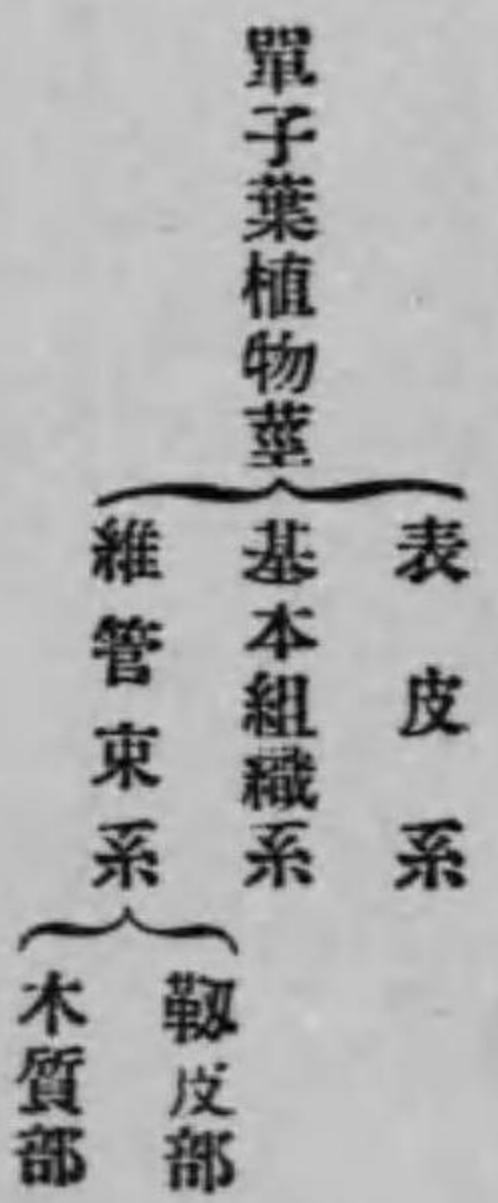 單子葉植物莖
表皮系
基本組織系
維管束系
靱皮部
木質部